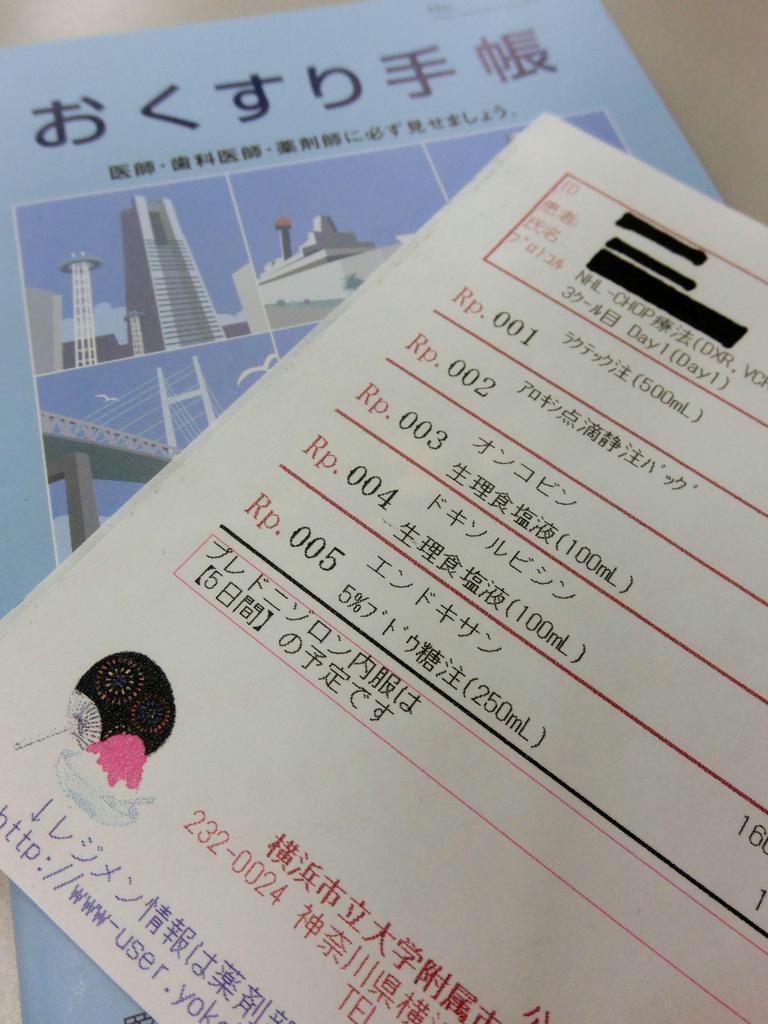 おくすり手帳
医師・歯科医師・薬剤師に必ず見せましょう。
ID
患者
氏名
プロトコル
NHL-CHOP療法(DXR, VCR
3クール目 Day1(Day1)
Rp. 001 ラクテック注(500mL)
Rp. 002 アロキシ点滴静注バッグ
Rp. 003 オンコビン
生理食塩液(100mL)
Rp. 004 ドキソルビシン
生理食塩液(100mL)
Rp. 005 エンドキサン
5%ブドウ糖注(250mL)
プレドニゾロン内服は
【5日間】の予定です
160
1
↓レジメン情報は薬剤部
http://www-user.yoko
横浜市立大学附属市
232-0024 神奈川県横浜
TEL